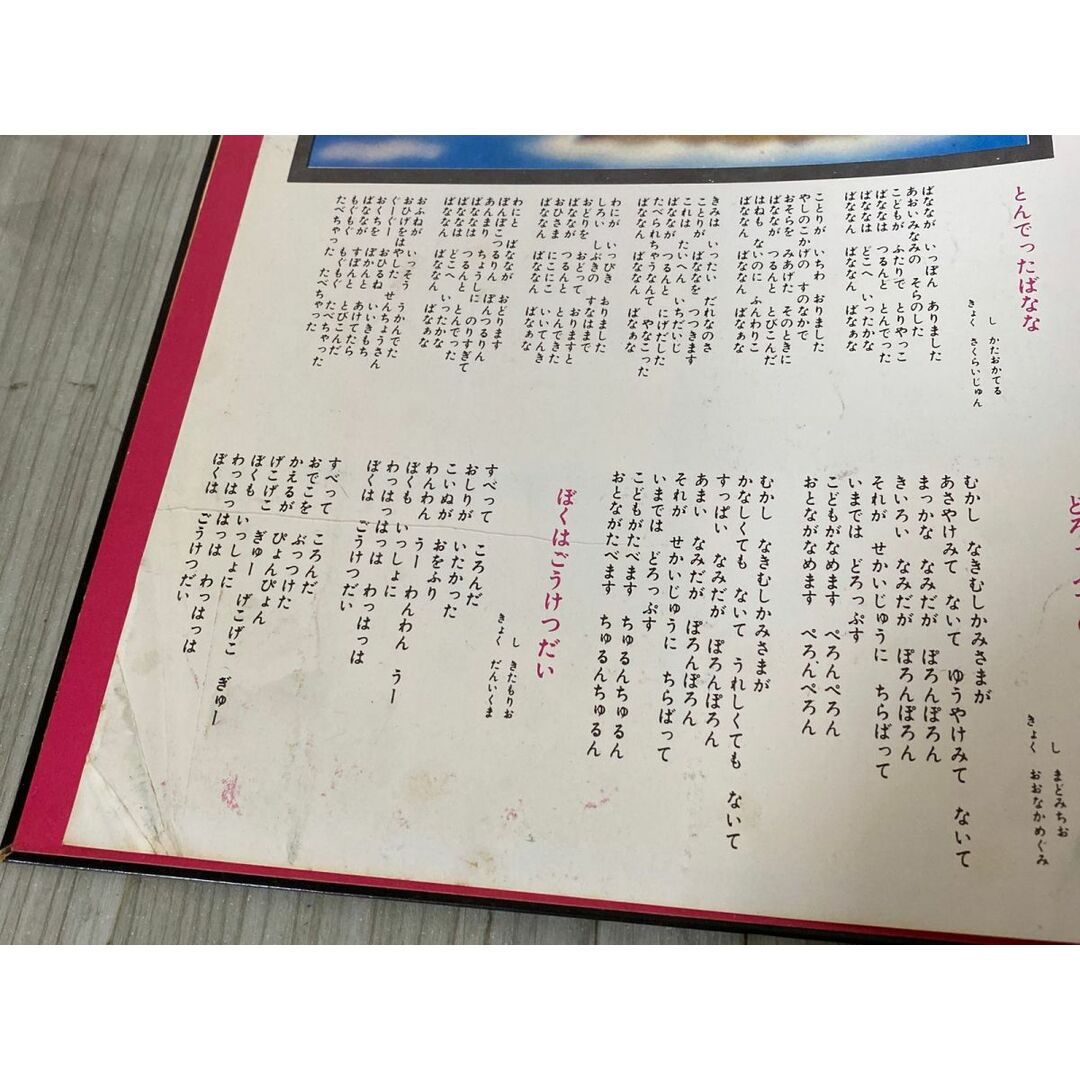 とんでったばなな
し かたおかてる
きょく さくらいじゅん
ばななが いっぽん ありました
あおいみなみの そらのした
こどもが ふたりで とりやっこ
ばななは つるんと とんでった
ばななは どこへ いったかな
ばななん ばななん ばなぁな
ことりが いちわ おりました
やしのこかげの すのなかで
おそらを みあげた そのときに
ばななが つるんと とびこんだ
はねも ないのに ふんわりこ
ばななん ばななん ばなぁな
きみは いったい だれなのさ
ことりが ばななを つつきます
これはたいへん いちだいじ
ばななが つるんと にげだした
たべられちゃうなんて やなこった
ばななん ばななん ばなぁな
わにが いっぴき おりました
しろい しぶきの すなはまで
おどりを おどって おりますと
ばななが つるんと とんできた
おひさま にこにこ いいてんき
ばななん ばななん ばなぁな
わにと ばななが おどります
ぽんぽこつるりん ぽんつるりん
あんまり ちょうしに のりすぎて
ばななは つるんと とんでった
ばななは どこへ いったかな
ばななん ばななん ばなぁな
おふねが いっそう うかんでた
おひげをはやした せんちょうさん
ぐーぐー おひるね いいきもち
おくちを ぽかんと あけてたら
ばななが すぽんと とびこんだ
もぐもぐ もぐもぐ たべちゃった
たべちゃった たべちゃった
し まどみちお
きょく おおなかめぐみ
むかし なきむしかみさまが
あさやけみて ないて ゆうやけみて ないて
まっかな なみだが ぽろんぽろん
きいろい なみだが ぽろんぽろん
それが せかいじゅうに ちらばって
いまでは どろっぷす
こどもがなめます ぺろんぺろん
おとながなめます ぺろんぺろん
むかし なきむしかみさまが
かなしくても ないて うれしくても ないて
すっぱい なみだが ぽろんぽろん
あまい なみだが ぽろんぽろん
それが せかいじゅうに ちらばって
いまでは どろっぷす
こどもがたべます ちゅるんちゅるん
おとながたべます ちゅるんちゅるん
ぼくはごうけつだい
し きたもりお
きょく だんいくま
すべって ころんだ
おしりが いたかった
こいぬが おをふり
わんわん うー わんわん うー
ぼくも いっしょに
わっはっはっは わっはっは
ぼくは ごうけつだい
すべって ころんだ
おでこを ぶっつけた
かえるが ぴょんぴょん
げこげこ ぎゅー げこげこ ぎゅー
ぼくも いっしょに
わっはっはっは わっはっは
ぼくは ごうけつだい